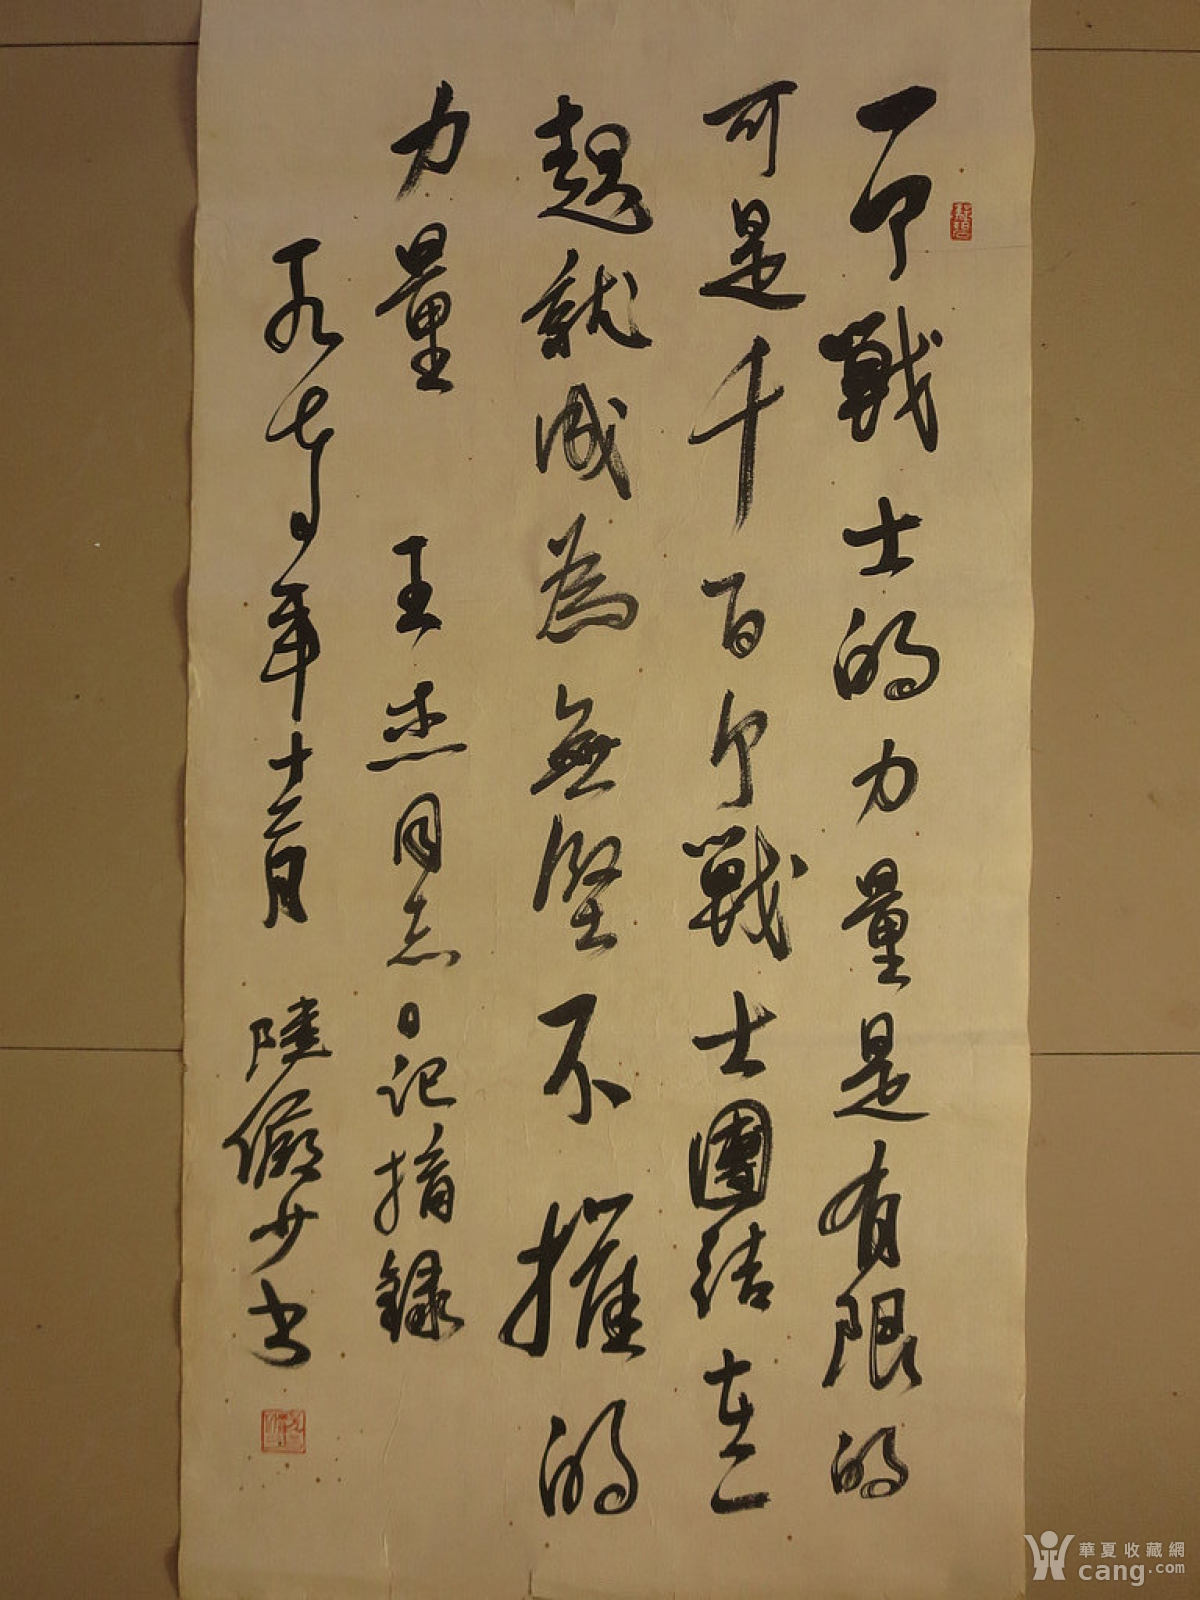 一个戰士的力量是有限的
可是千百个戰士團结在一
起就成為無堅不摧的
力量 王杰同志日记摘録
一九七年十二月 陸儼少书
華夏收藏網
cang.com